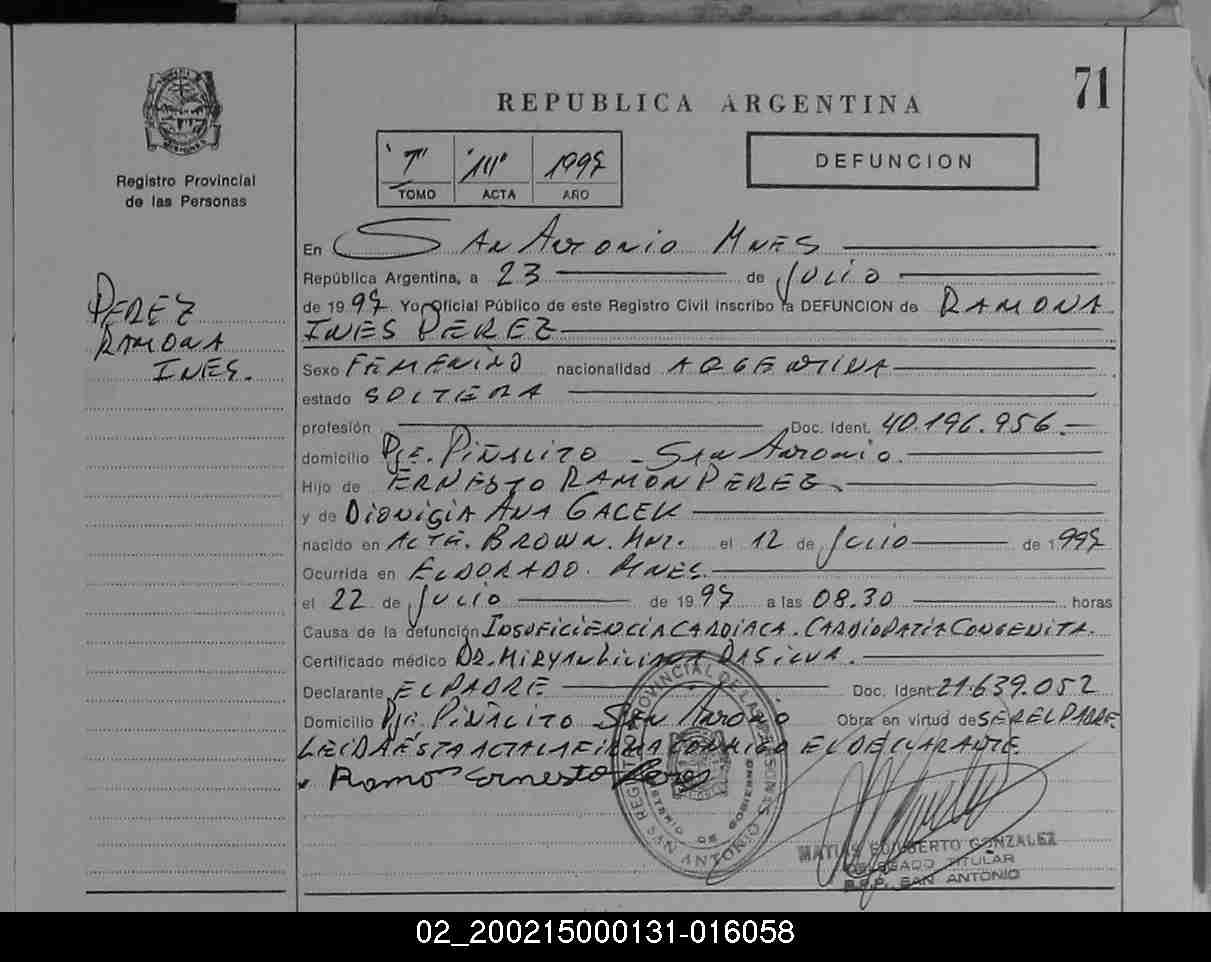 71
REPUBLICA ARGENTINA
Registro Provincial
de las Personas
"T" "III" 1997
TOMO ACTA AÑO
DEFUNCION
PEREZ
RAMONA
INES.
En SAN ANTONIO MNES
República Argentina, a 23 de JULIO
de 1997 Yo, Oficial Público de este Registro Civil inscribo la DEFUNCION de RAMONA
INES PEREZ
Sexo FEMENINO nacionalidad ARGENTINA
estado SOLTERA
profesión Doc. Ident. 40.196.956.
domicilio PJE. PIÑALITO - SAN ANTONIO.
Hijo de ERNESTO RAMON PEREZ
y de DIONICIA ANA GACEK
nacido en ALTE. BROWN. MNES. el 12 de JULIO de 1997
Ocurrida en ELDORADO. MNES.
el 22 de JULIO de 1997 a las 08.30 horas
Causa de la defunción INSUFICIENCIA CARDIACA. CARDIOPATIA CONGENITA.
Certificado médico DR. MIRYAN LILIANA DASILVA.
Declarante EL PADRE Doc. Ident. 21.639.052
Domicilio PJE. PIÑALITO SAN ANTONIO Obra en virtud de SER EL PADRE.
LEIDA ESTA ACTA LA FIRMA CONMIGO EL DECLARANTE
Ramo Ernesto Peres
REGISTRO PROVINCIAL DE LAS PERSONAS
MINISTERIO DE GOBIERNO
SAN ANTONIO
MATIAS EDILBERTO GONZALEZ
DELEGADO TITULAR
R.P.P. SAN ANTONIO
02_200215000131-016058